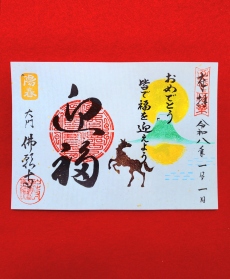 おめでとう
皆で福を迎えよう
令和八年一月一日
迎春
迎福
大門
佛願寺